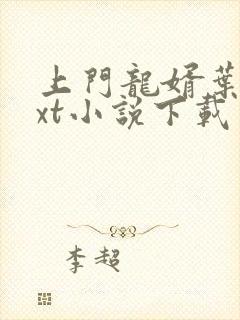 上門龍婿葉
xt小說下載
李超